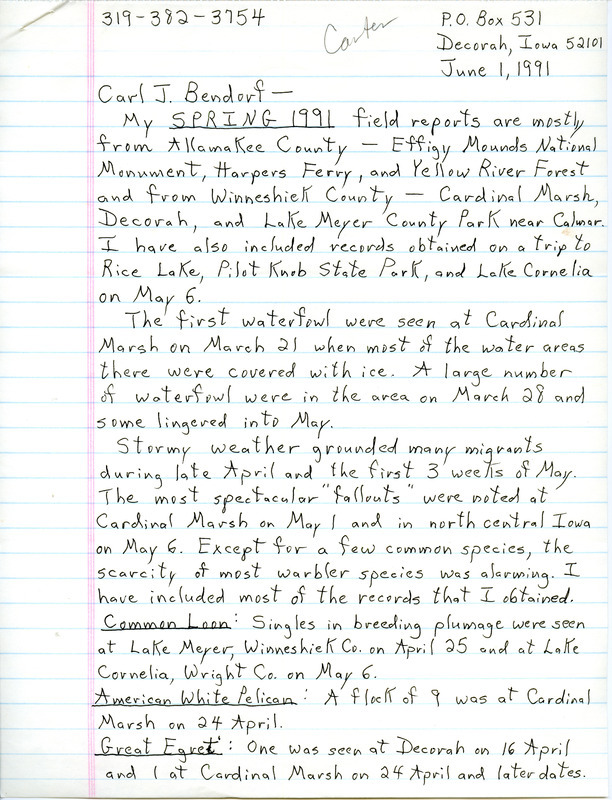 319-382-3754
Carter
P.O. Box 531
Decorah, Iowa 52101
June 1, 1991
Carl J. Bendorf —
My SPRING 1991 field reports are mostly
from Allamakee County — Effigy Mounds National
Monument, Harpers Ferry, and Yellow River Forest
and from Winneshiek County — Cardinal Marsh,
Decorah, and Lake Meyer County Park near Calmar.
I have also included records obtained on a trip to
Rice Lake, Pilot Knob State Park, and Lake Cornelia
on May 6.
The first waterfowl were seen at Cardinal
Marsh on March 21 when most of the water areas
there were covered with ice. A large number
of waterfowl were in the area on March 28 and
some lingered into May.
Stormy weather grounded many migrants
during late April and the first 3 weeks of May.
The most spectacular "fallouts" were noted at
Cardinal Marsh on May 1 and in north central Iowa
on May 6. Except for a few common species, the
scarcity of most warbler species was alarming. I
have included most of the records that I obtained.
Common Loon: Singles in breeding plumage were seen
at Lake Meyer, Winneshiek Co. on April 25 and at Lake
Cornelia, Wright Co. on May 6.
American White Pelican: A flock of 9 was at Cardinal
Marsh on 24 April.
Great Egret: One was seen at Decorah on 16 April
and 1 at Cardinal Marsh on 24 April and later dates.